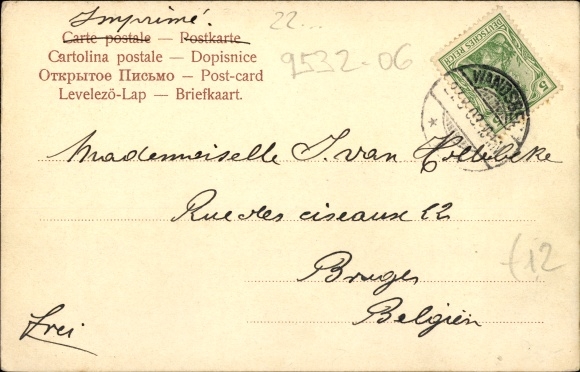 Imprimé.
Carte postale — Postkarte
Cartolina postale — Dopisnice
Открытое Письмо — Post-card
Levelező-Lap — Briefkaart.
22...
9532-06
DEUTSCHES REICH
5
WANDSBEK
Mademoiselle J. van
Rue des ciseaux 12
Bruges
Belgiën
Frei